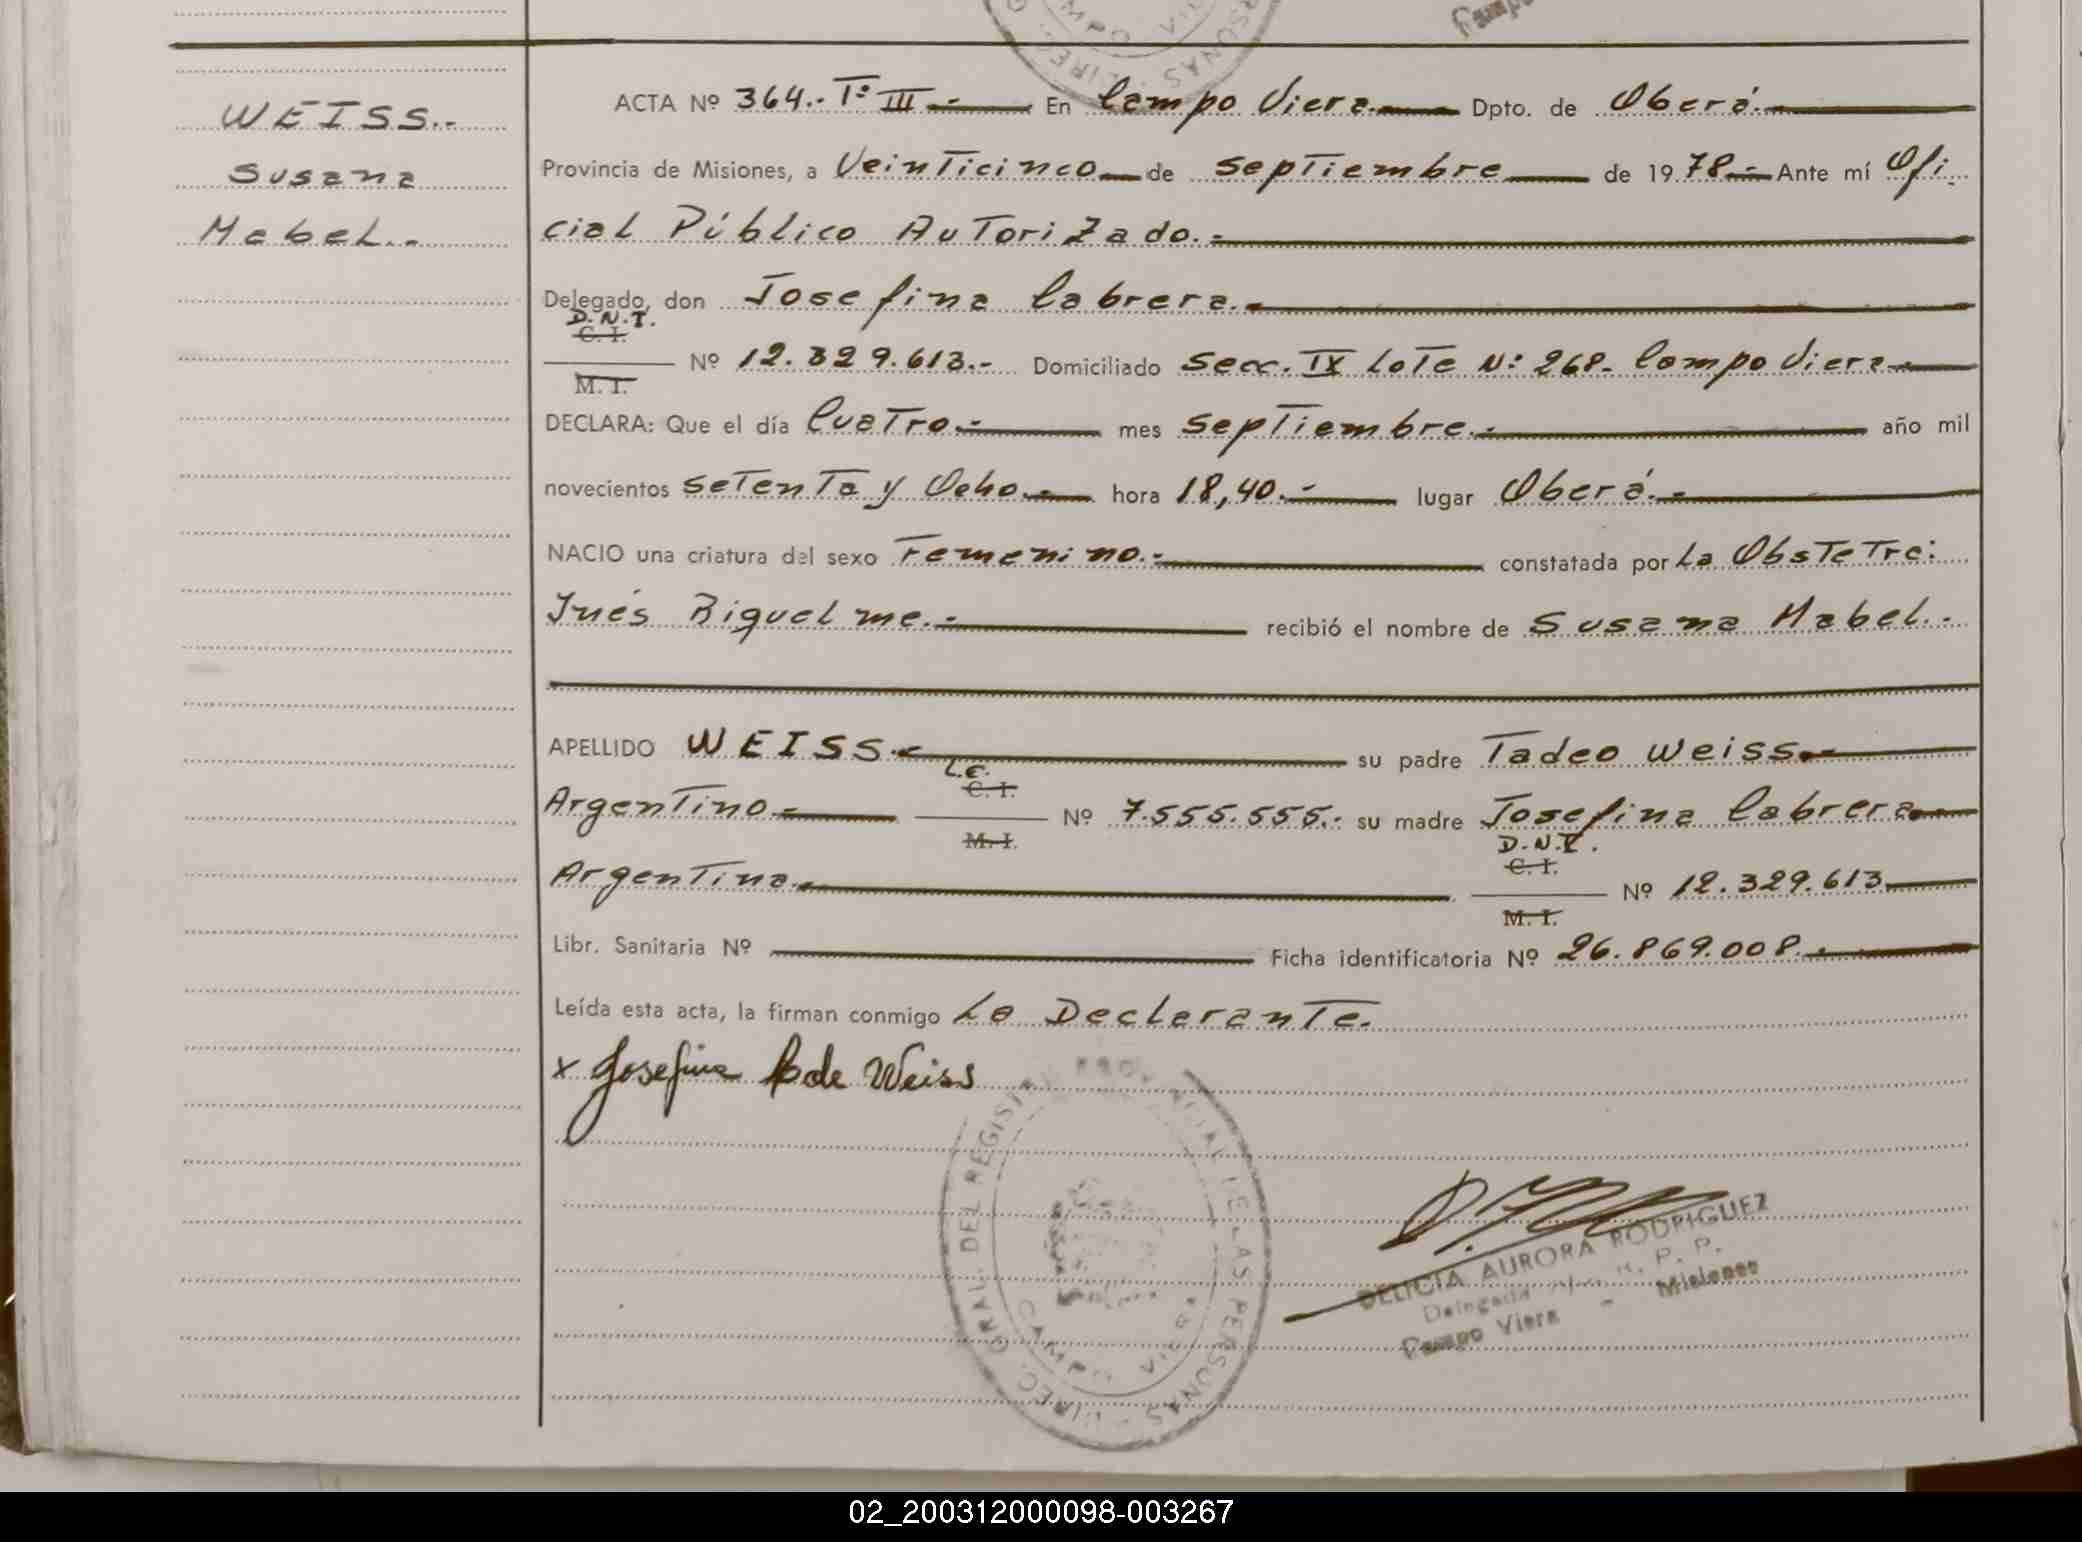 WEISS.-
Susana
Mabel.-
ACTA Nº 364.- Tº III.- En Campo Viera. Dpto. de Oberá.-
Provincia de Misiones, a Veinticinco de septiembre de 1978.- Ante mí Ofi-
cial Público Autorizado.-
Delegado, don Josefina Cabrera.-
D.N.I.
C. I.
Nº 12.329.613.- Domiciliado Secc. IX Lote Nº 268- Campo Viera-
M. I.
DECLARA: Que el día Cuatro.- mes septiembre.- año mil
novecientos setenta y Ocho.- hora 18,40.- lugar Oberá.-
NACIO una criatura del sexo Femenino.- constatada por La Obstetra:
Inés Riquelme.- recibió el nombre de Susana Mabel.-
APELLIDO WEISS.- su padre Tadeo Weiss.-
L.E.
C. I.
Argentino.- Nº 7.555.555.- su madre Josefina Cabrera
M. I.
D.N.I.
C. I.
Argentina.- Nº 12.329.613
M. I.
Libr. Sanitaria Nº Ficha identificatoria Nº 26.869.008.-
Leída esta acta, la firman conmigo La Declarante.
x Josefina C de Weiss
DIREC. GRAL. DEL REGISTRO PROVINCIAL DE LAS PERSONAS
CAMPO VIERA
DELICIA AURORA RODRIGUEZ
Delegada R. P. P.
Campo Viera - Misiones
Campo
02_200312000098-003267